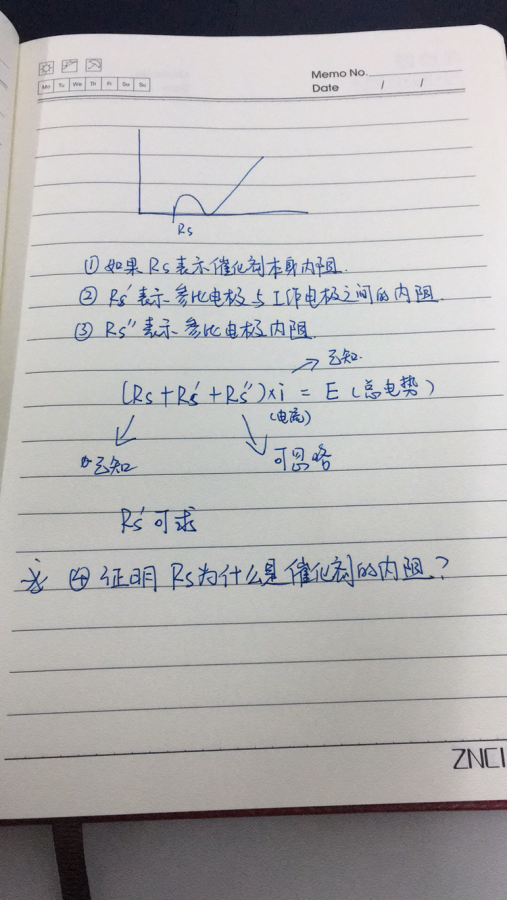 Memo No.
Mo Tu We Th Fr Sa Su
Date / /
Rs
① 如果 Rs 表示催化剂本身内阻.
② Rs' 表示参比电极与工作电极之间的内阻.
③ Rs'' 表示参比电极内阻.
已知.
(Rs + Rs' + Rs'')×i = E (总电势)
(电流)
已知
可忽略
Rs' 可求
④ 证明 Rs为什么是催化剂的内阻?
ZNCI